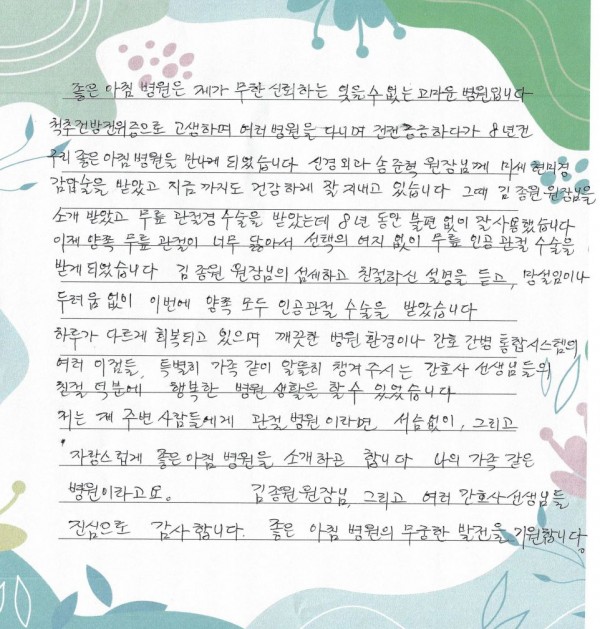 좋은아침 병원은 제가 무한신뢰하는 잊을수없는 고마운 병원입니다
척추전방전위증으로 고생하며 여러병원을 다니며 전전긍긍하다가 8년전
구리 좋은아침 병원을 만나게 되었습니다 신경외과 송준혁 원장님께 미세 현미경
감압술을 받았고 지금 까지도 건강하게 잘 지내고 있습니다 그때 김종원 원장님을
소개 받았고 무릎 관절경 수술을 받았는데 8년 동안 불편 없이 잘사용했습니다
이제 양쪽 무릎 관절이 너무 닳아서 선택의 여지 없이 무릎 인공관절 수술을
받게되었습니다 김종원 원장님의 섬세하고 친절하신 설명을 듣고, 망설임이나
두려움없이 이번에 양쪽 모두 인공관절 수술을 받았습니다
하루가 다르게 회복되고 있으며 깨끗한 병원 환경이나 간호 간병 통합시스템의
여러 이점들, 특별히 가족 같이 알뜰히 챙겨주시는 간호사 선생님들의
친절 덕분에 행복한 병원 생활을 할수 있었습니다
저는 제 주변 사람들에게 관절 병원이라면 서슴없이, 그리고
자랑스럽게 좋은아침 병원을 소개하곤 합니다 나의 가족 같은
병원이라고요. 김종원원장님, 그리고 여러 간호사선생님들
진심으로 감사합니다. 좋은 아침 병원의 무궁한 발전을 기원합니다.